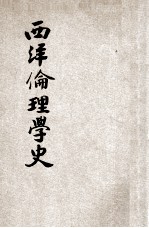 西洋倫理學史